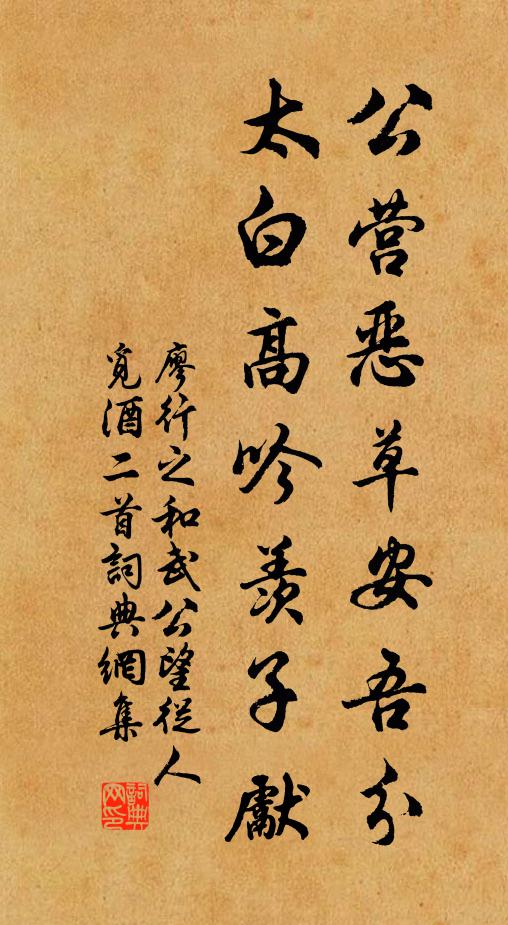 公营恶草安吾分
太白高吟羨子獻
廖行之和武公望從人
覓酒二首詞典網集
詞典网印